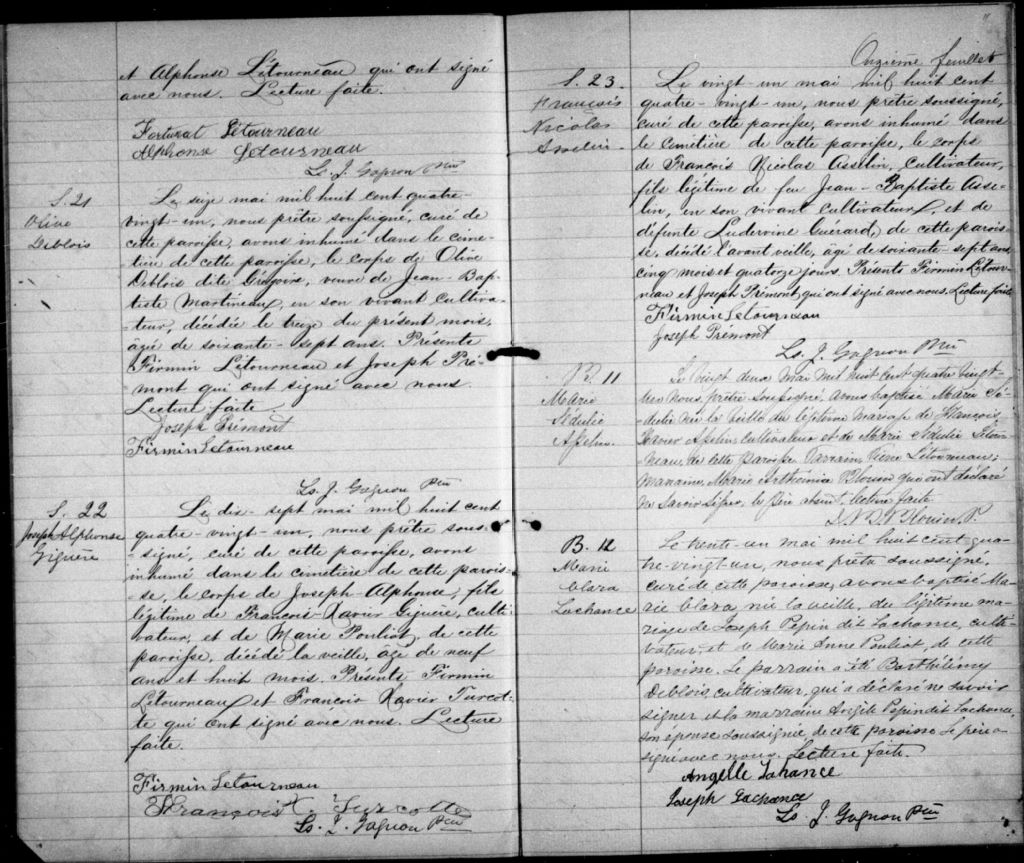 et Alphonse Létourneau qui ont signé
avec nous. Lecture faite.
Fortunat Létourneau
Alphonse Letourneau
Ls. J. Gagnon Ptre
S. 21
Olive
Deblois
Le seize mai mil huit cent quatre-
vingt-un, nous prêtre soussigné, curé de
cette paroisse, avons inhumé dans le cime-
tière de cette paroisse, le corps de Olive
Deblois dite Grégoire, veuve de Jean-Bap-
tiste Martineau, en son vivant cultiva-
teur, décédée le treize du présent mois,
âgée de soixante-sept ans. Présents
Firmin Létourneau et Joseph Pré-
mont qui ont signé avec nous.
Lecture faite.
Joseph Prémont
Firmin Letourneau
Ls. J. Gagnon Ptre
S. 22
Joseph Alphonse
Giguère
Le dix-sept mai mil huit cent
quatre-vingt-un, nous prêtre sous-
signé, curé de cette paroisse, avons
inhumé dans le cimetière de cette parois-
se, le corps de Joseph-Alphonse, fils
légitime de François-Xavier Giguère, culti-
vateur, et de Marie Pouliot, de cette
paroisse, décédé la veille, âgé de neuf
ans et huit mois. Présents Firmin
Létourneau et François Xavier Turcot-
te qui ont signé avec nous. Lecture
faite.
Firmin Letourneau
François Turcotte
Ls. J. Gagnon Ptre
Onzième feuillet
S. 23.
François
Nicolas
Asselin
Le vingt-un mai mil huit cent
quatre-vingt-un, nous prêtre soussigné,
curé de cette paroisse, avons inhumé dans
le cimetière de cette paroisse, le corps
de François Nicolas Asselin, cultivateur,
fils légitime de feu Jean-Baptiste Asse-
lin, en son vivant cultivateur, et de
défunte Ludevine Guérard, de cette parois-
se, décédé l'avant veille, âgé de soixante-sept ans
cinq mois et quatorze jours. Présents Firmin Létour-
neau et Joseph Prémont qui ont signé avec nous. Lecture faite
Firmin Letourneau
Joseph Prémont
Ls. J. Gagnon Ptre
B. 11
Marie
Sédulie
Asselin
Le vingt deux mai mil huit cent quatre vingt-
un nous, prêtre soussigné, avons baptisé Marie Sé-
dulie née la veille du légitime mariage de François
Xavier Asselin cultivateur et de Marie Sédulie Létour-
neau, de cette paroisse. Parrain, Létourneau;
marraine, Marie Blouin qui ont déclaré
ne savoir signer, le père absent. Lecture faite
Blouin, P.
B. 12
Marie
Clara
Lachance
Le trente-un mai mil huit cent qua-
tre-vingt-un, nous prêtre soussigné,
curé de cette paroisse, avons baptisé Ma-
rie Clara née la veille, du légitime ma-
riage de Joseph Pepin dit Lachance, culti-
vateur et de Marie Anne Pouliot, de cette
paroisse. Le parrain a été Barthélémy
Deblois, cultivateur, qui a déclaré ne savoir
signer et la marraine Angèle Pepin dit Lachance,
son épouse soussignée, de cette paroisse. Le père a
signé avec nous. Lecture faite.
Angelle Lahance
Joseph Lachance
Ls. J. Gagnon Ptre